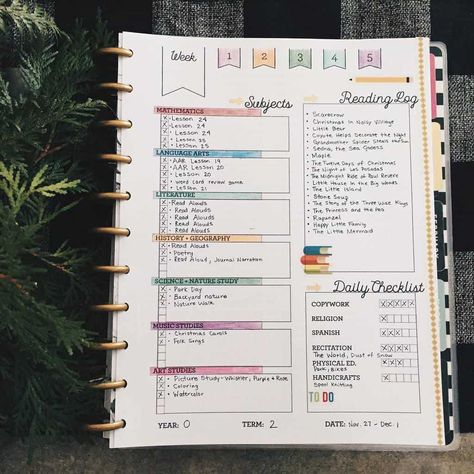 Week
1 2 3 4 5
Subjects
MATHEMATICS
x • Lesson 24
x • Lesson 24
x • Lesson 24
x • Lesson 25
x • Lesson 25
LANGUAGE ARTS
x • AAR Lesson 19
x • AAR Lesson 20
x • Lesson 20
x • word card review game
x • Lesson 21
LITERATURE
x • Read Alouds
x • Read Alouds
x • Read Alouds
x • Read Alouds
x • Read Alouds
HISTORY + GEOGRAPHY
x • Read Alouds
x • Poetry
x • Read Aloud, Journal Narration
SCIENCE + NATURE STUDY
x • Park Day
x • Backyard nature
x • Nature Walk
MUSIC STUDIES
x • Christmas Carols
x • Folk Songs
ART STUDIES
x • Picture Study - Whistler, Purple + Rose
x • Coloring
x • Watercolor
Reading Log
• Scarecrow
• Christmas in Noisy Village
• Little Bear
• Coyote Helps Decorate the Night
• Grandmother Spider Steals the
• Sedna, the Sea Goddess
• Maple
• The Twelve Days of Christmas
• The Night of Las Posadas
• The Midnight Ride of Paul Revere
• Little House in the Big Woods
• The Little Island
• Stone Soup
• The Story of the Three Wise Kings
• The Princess and the Pea
• Rapunzel
• Happy Little Family
• The Little Mermaid
Daily Checklist
COPYWORK x x x x
RELIGION
SPANISH x x x
RECITATION x x x x
The World, Dust of Snow
PHYSICAL ED. x x
Park, Bikes
HANDICRAFTS x
Spool Knitting
TO DO
YEAR: 0 TERM: 2 DATE: Nov. 27 - Dec. 1